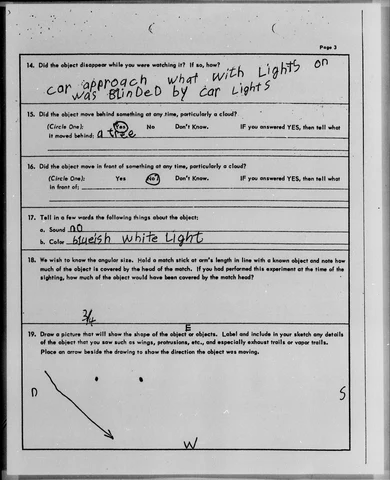 Page 3
14. Did the object disappear while you were watching it? If so, how?
car approach what with Lights on
was BlinDeD by car Lights
15. Did the object move behind something at any time, particularly a cloud?
(Circle One): Yes No Don't Know. IF you answered YES, then tell what
it moved behind: a tree
16. Did the object move in front of something at any time, particularly a cloud?
(Circle One): Yes No Don't Know. IF you answered YES, then tell what
in front of:
17. Tell in a few words the following things about the object:
a. Sound no
b. Color blueish white light
18. We wish to know the angular size. Hold a match stick at arm's length in line with a known object and note how
much of the object is covered by the head of the match. If you had performed this experiment at the time of the
sighting, how much of the object would have been covered by the match head?
3/4
19. Draw a picture that will show the shape of the object or objects. Label and include in your sketch any details
of the object that you saw such as wings, protrusions, etc., and especially exhaust trails or vapor trails.
Place an arrow beside the drawing to show the direction the object was moving.
E
S
W